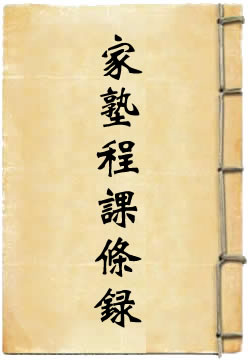 家塾程課條録